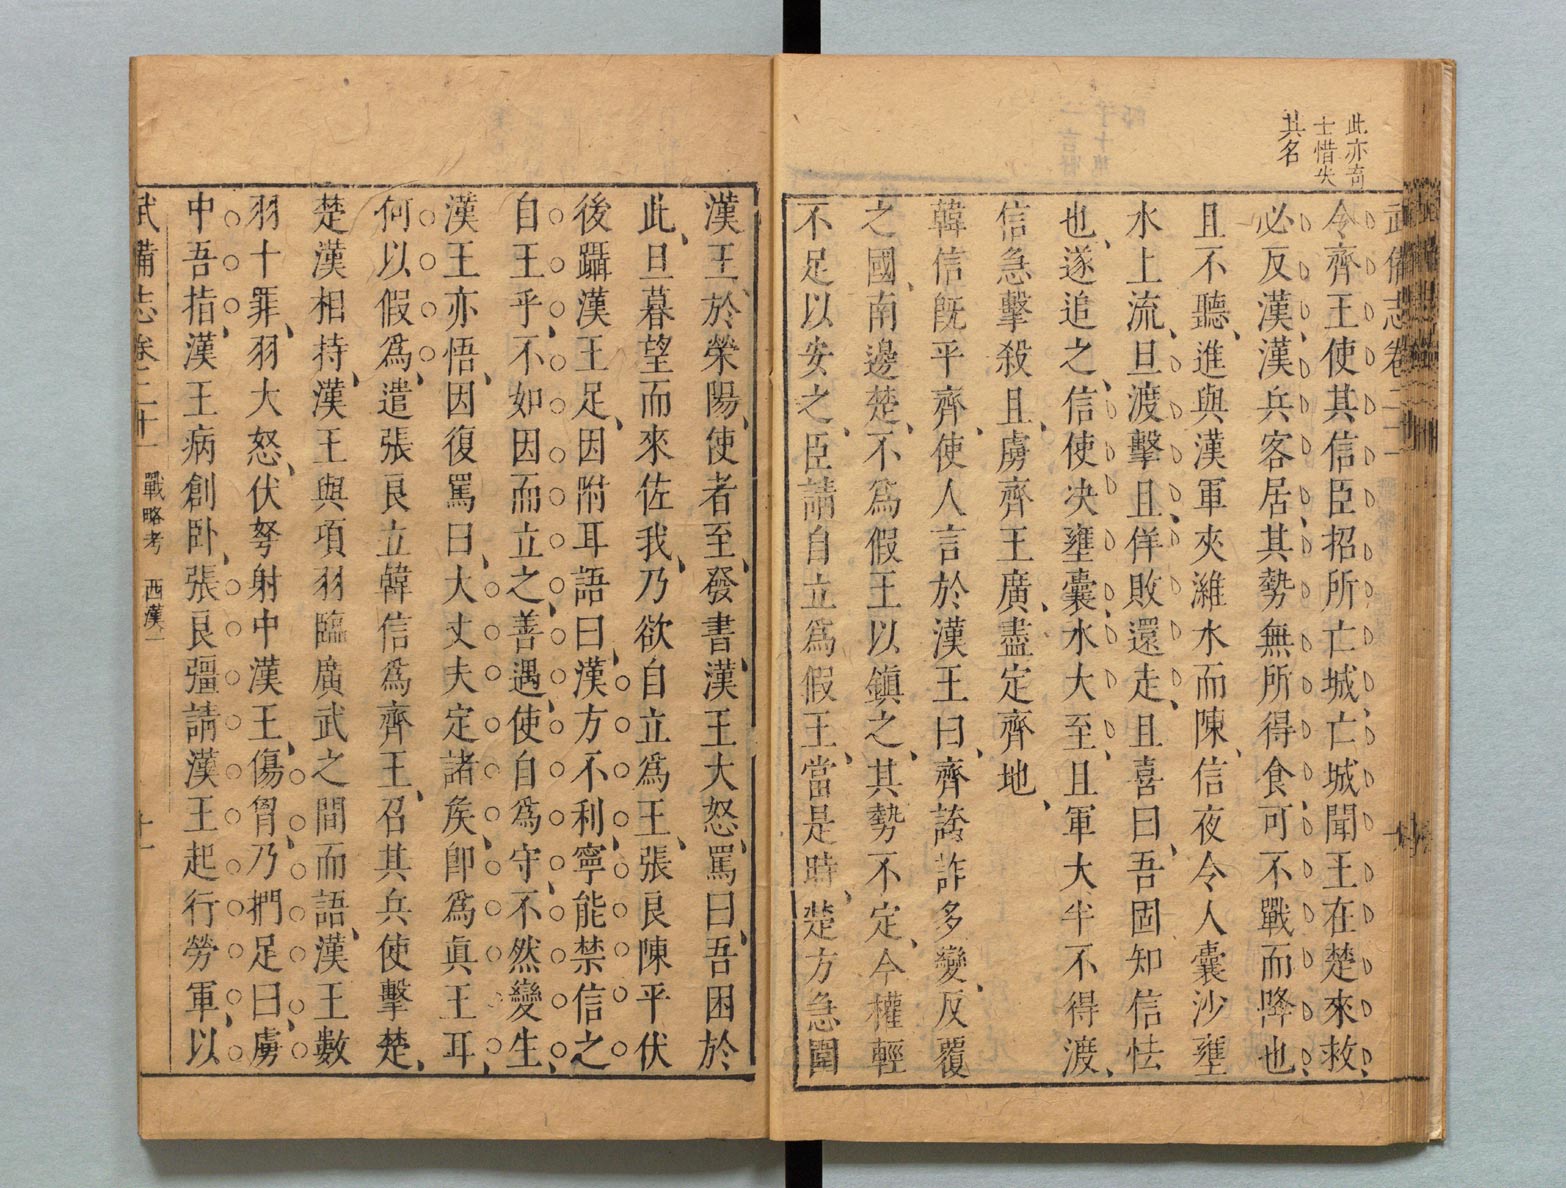 此亦奇
士惜失
其名
武備志卷二十一
令齊王使其信臣招所亡城亡城聞王在楚來救
必反漢漢兵客居其勢無所得食可不戰而降也
且不聽進與漢軍夾濰水而陳信夜令人囊沙壅
水上流旦渡擊且佯敗還走且喜曰吾固知信怯
也遂追之信使决壅囊水大至且軍大半不得渡
信急擊殺且虜齊王廣盡定齊地
韓信既平齊使人言於漢王曰齊誇詐多變反覆
之國南邊楚不爲假王以鎮之其勢不定今權輕
不足以安之臣請自立爲假王當是時楚方急圍
漢王於滎陽使者至發書漢王大怒罵曰吾困於
此旦暮望而來佐我乃欲自立爲王張良陳平伏
後躡漢王足因附耳語曰漢方不利寧能禁信之
自王乎不如因而立之善遇使自爲守不然變生
漢王亦悟因復罵曰大丈夫定諸矦卽爲眞王耳
何以假爲遣張良立韓信爲齊王召其兵使擊楚
楚漢相持漢王與項羽臨廣武之間而語漢王數
羽十罪羽大怒伏弩射中漢王傷胷乃捫足曰虜
中吾指漢王病創臥張良彊請漢王起行勞軍以
武備志卷二十一 戰略考 西漢一 十一